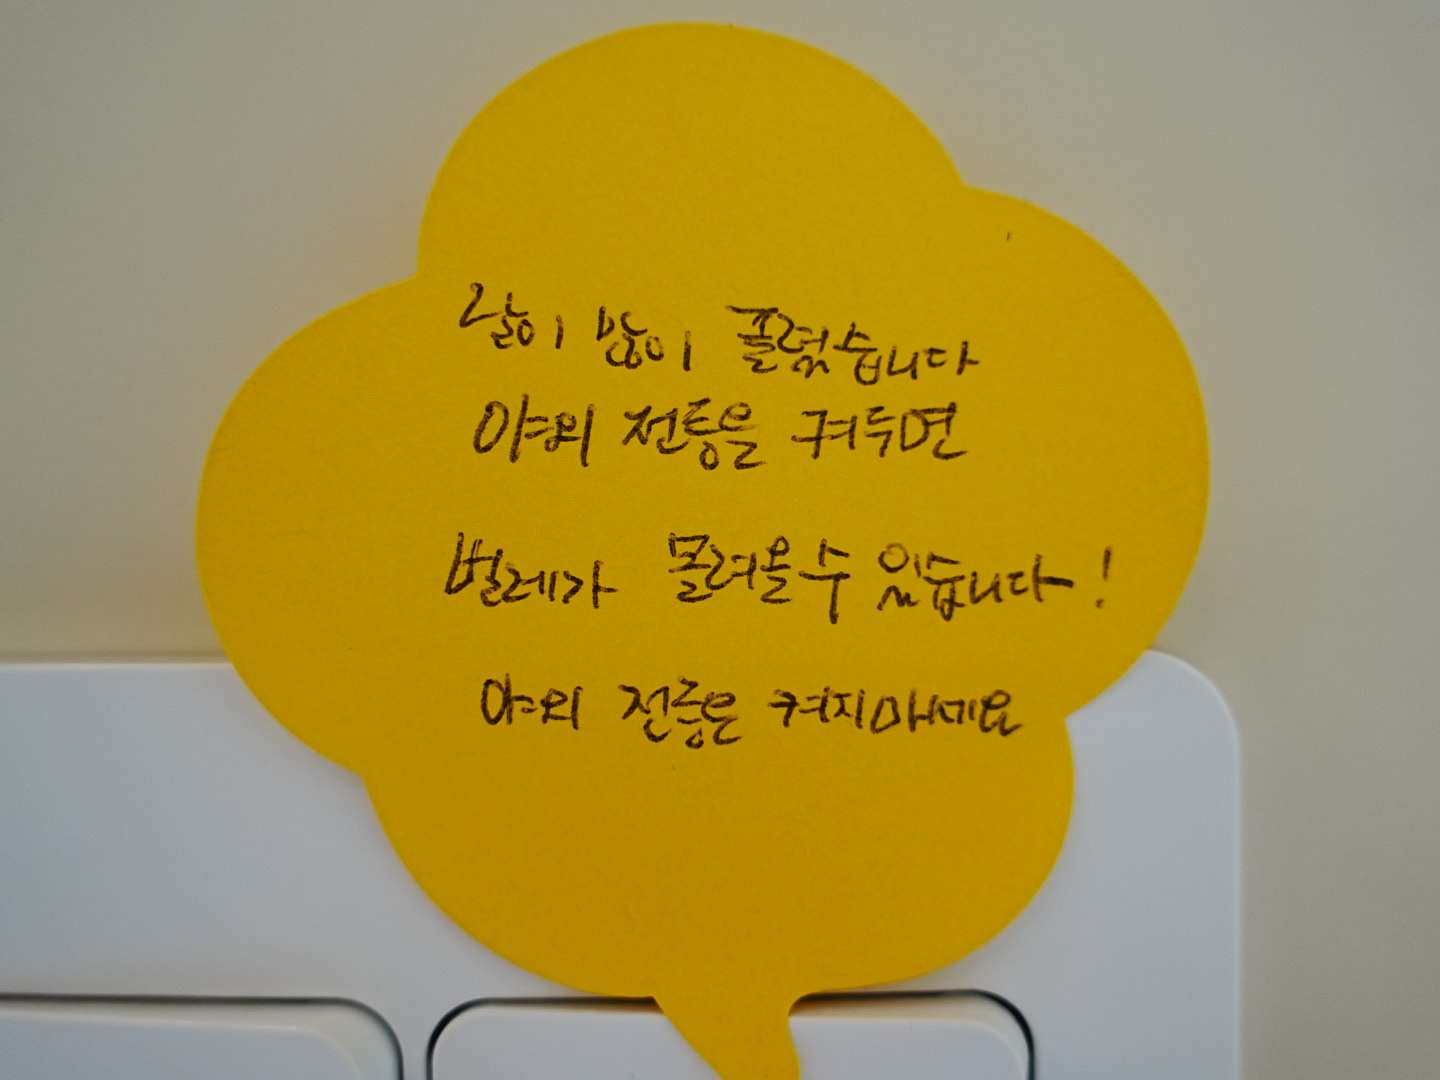 날이 많이 풀렸습니다
야외 전등을 켜두면
벌레가 몰려올 수 있습니다!
야외 전등은 켜지마세요